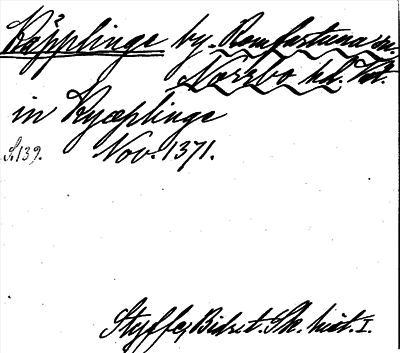 Käpplinge by. Romfartuna sn.
Norrbo hd. Vst.
in Kyæplinge
S. 139. Nov. 1371.
Styffe, Bidr. t. Sk. hist. I.